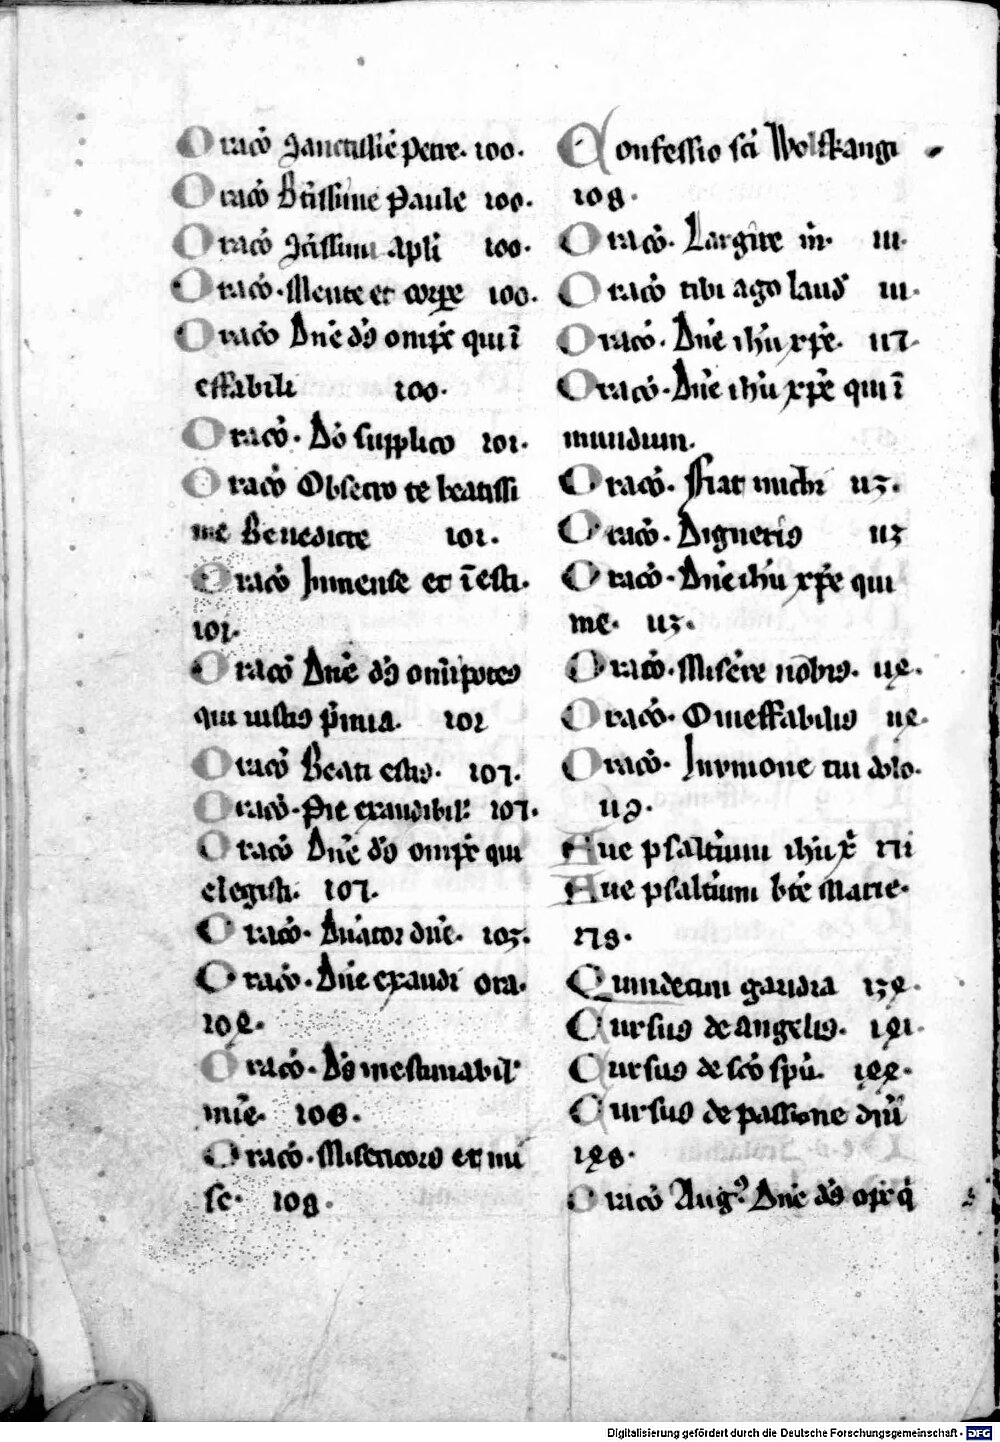 Oracō Sanctissīe petre. 100.
Oracō Btīssime paule 100.
Oracō Scīssimi apli 100.
Oracō. Mente et corpe 100.
Oracō Dnē ds omps qui ī
effabili 100.
Oracō. Do supplico 101.
Oracō Obsecro te beatissi
me Benedicte 101.
Oracō Inmense et īesti.
101.
Oracō Dnē ds omīpotes
qui iustis pīmia. 101
Oracō Beati estis. 102.
Oracō. Pie exaudibil 102.
Oracō Dnē ds omps qui
elegisti. 102.
Oracō. dnē. 103.
Oracō. Dnē exaudi ora.
104.
Oracō. Ds inestimabil
mīe. 106.
Oracō. Misericors et mi
se. 108.
Confessio sci Wolfkangi
108.
Oracō. Largire m. 111.
Oracō tibi ago laud 111.
Oracō. Dnē ihu xpē. 112.
Oracō. Dnē ihu xpē qui ī
mundum.
Oracō. Fiat michi 113.
Oracō. Digneris 113
Oracō. Dnē ihu xpē qui
me. 113.
Oracō. Miserē nobis. 114.
Oracō. O ineffabilis 114.
Oracō. In vnione tui
119.
Aue psaltium ihu x 121
Aue psaltium btē Marie.
128.
Quindecim gaudia 134.
Cursus de angelis. 141.
Cursus de scō spū. 144.
Cursus de passione dni
148.
Oracō Aug. Dnē ds ops q